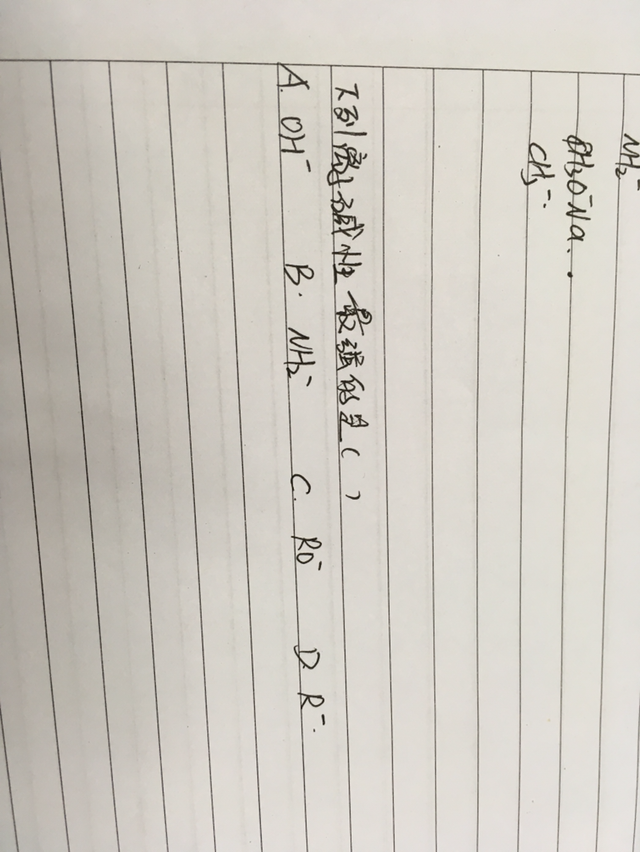 NH₂⁻
CH₃O⁻Na.
CH₃⁻.
下列离子碱性最强的是( )
A. OH⁻ B. NH₂⁻ C. RO⁻ D. R⁻.